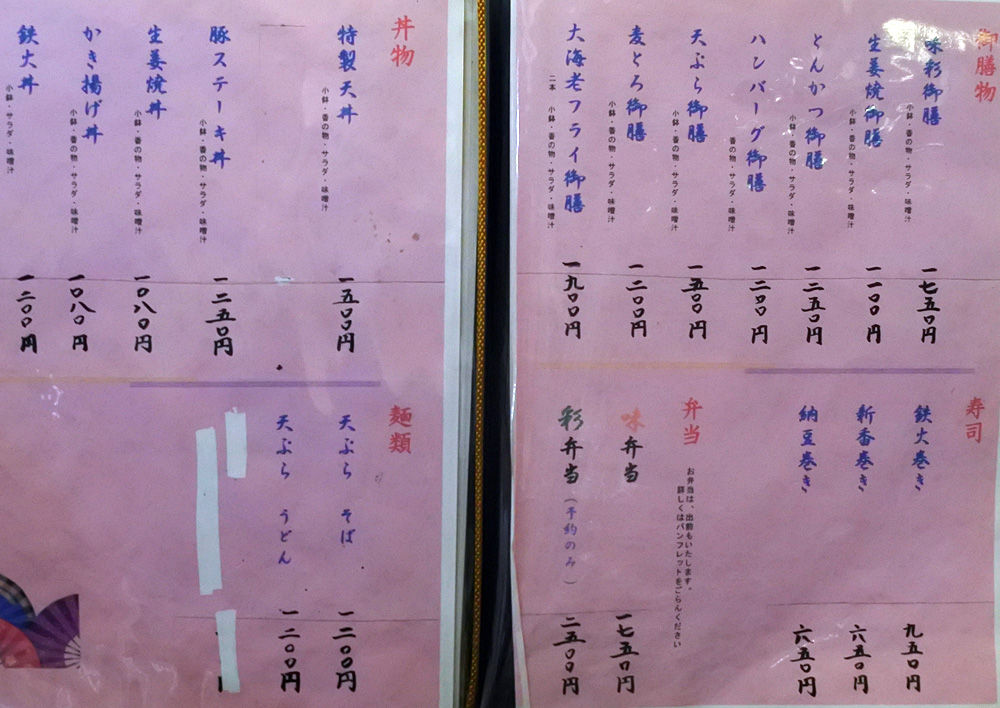 御膳物
味彩御膳
小鉢・香の物・サラダ・味噌汁
一七五〇円
生姜焼御膳
小鉢・香の物・サラダ・味噌汁
一一〇〇円
とんかつ御膳
小鉢・香の物・サラダ・味噌汁
一二五〇円
ハンバーグ御膳
香の物・サラダ・味噌汁
一二〇〇円
天ぷら御膳
小鉢・香の物・サラダ・味噌汁
一五〇〇円
麦とろ御膳
小鉢・香の物・サラダ・味噌汁
一二〇〇円
大海老フライ御膳
二本 小鉢・香の物・サラダ・味噌汁
一九〇〇円
寿司
鉄火巻き
九五〇円
新香巻き
六五〇円
納豆巻き
六五〇円
弁当
お弁当は、出前もいたします。
詳しくはパンフレットをごらんください
味弁当
一七五〇円
彩弁当(予約のみ)
二五〇〇円
丼物
特製天丼
小鉢・香の物・サラダ・味噌汁
一五〇〇円
豚ステーキ丼
小鉢・香の物・サラダ・味噌汁
一二五〇円
生姜焼丼
小鉢・香の物・サラダ・味噌汁
一〇八〇円
かき揚げ丼
小鉢・香の物・サラダ・味噌汁
一〇八〇円
鉄火丼
小鉢・サラダ・味噌汁
一二〇〇円
麺類
天ぷら そば
一二〇〇円
天ぷら うどん
一二〇〇円